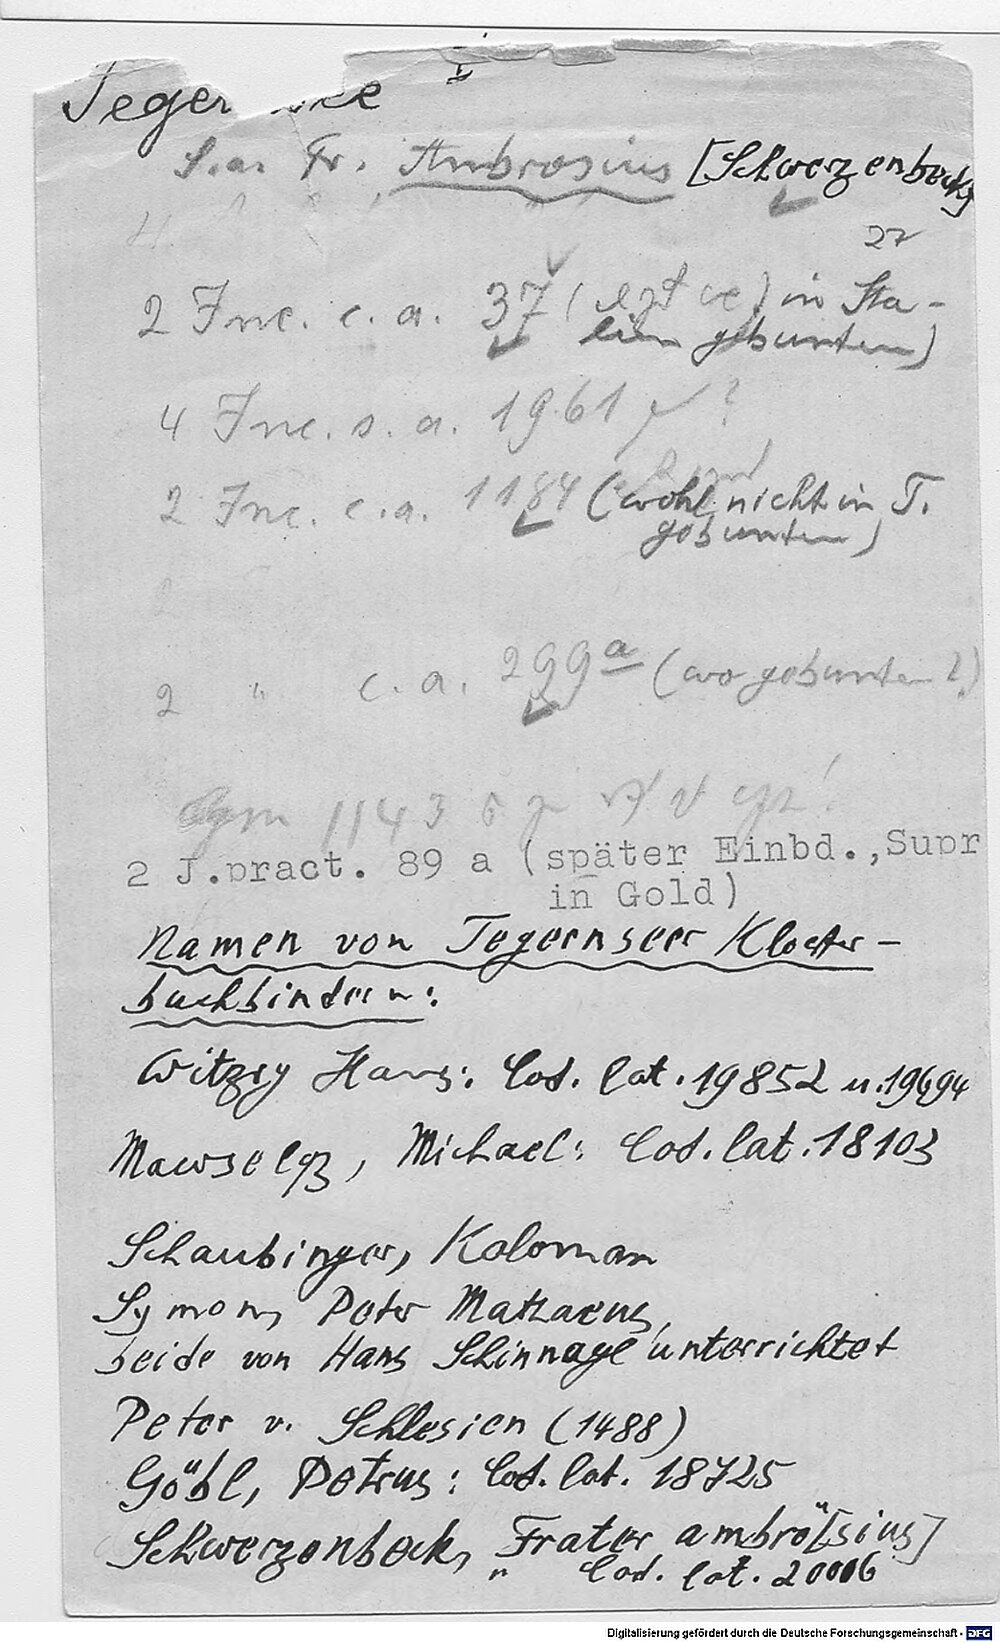 Teger see I
S.a. Fr. Ambrosius [Schwerzenbeck]
27
2 Inc. c. a. 37 ( in Ita-
lien gebunden)
4 Inc. s. a. 1961 ?
2 Inc. c. a. 1184 (wohl nicht in T.
gebunden)
2 " c. a. 299a (wo gebunden?)
Cgm 1143
2 J.pract. 89 a (später Einbd.,Supr
in Gold)
Namen von Tegernseer Kloster-
buchbindern:
Witzgy Hans: Cod. lat. 19852 u. 19694
Mawselgz, Michael: Cod. lat. 18103
Schaubinger, Koloman
Symon, Peter Mathaeus,
beide von Hans Schinnagel unterrichtet
Peter v. Schlesien (1488)
Göbl, Petrus: Cod. lat. 18725
Schwerzenbeck, "Frater ambro"[sius]
" Cod. lat. 20006
Digitalisierung gefördert durch die Deutsche Forschungsgemeinschaft - DFG